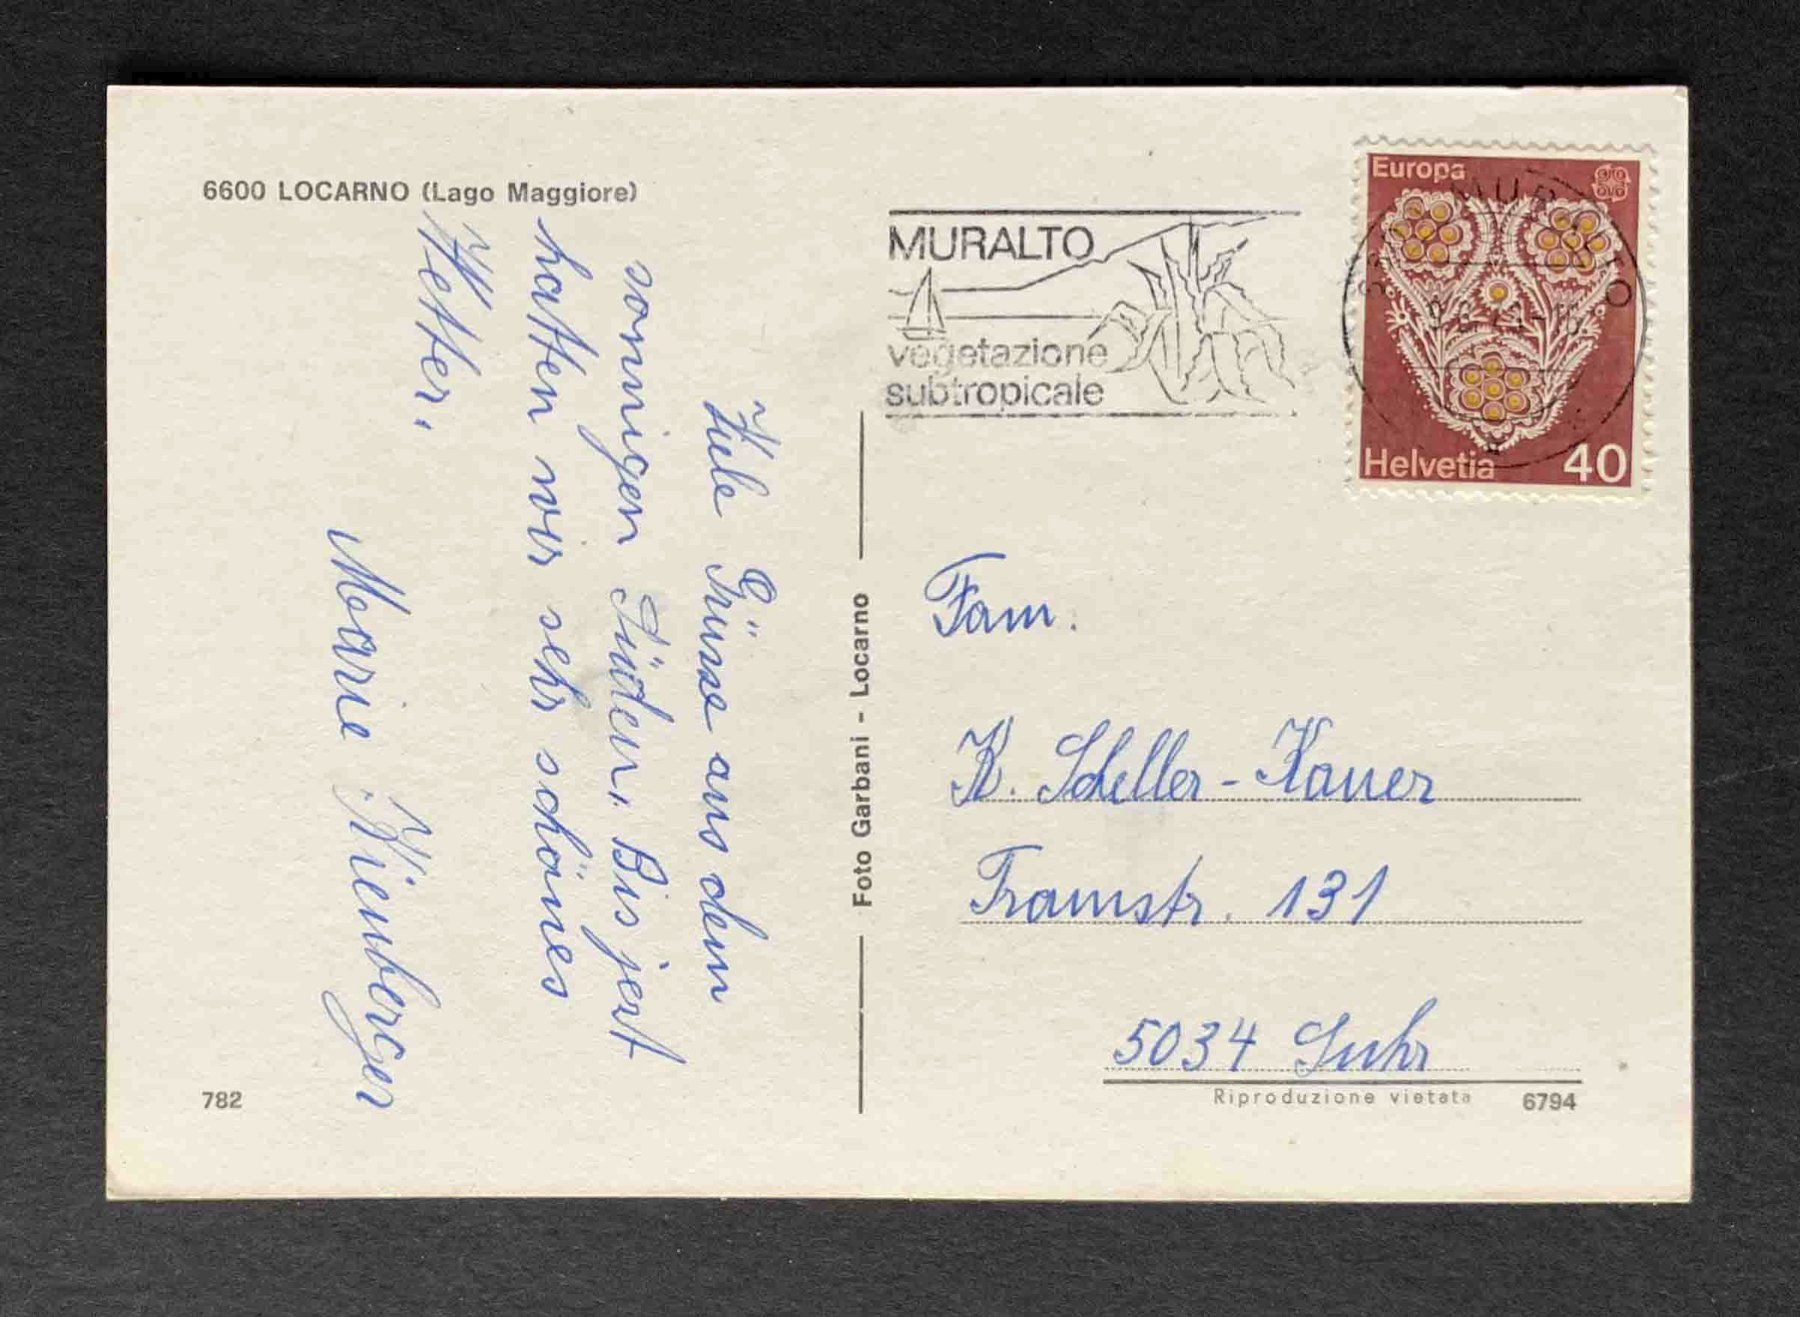 6600 LOCARNO (Lago Maggiore)
Viele Grüsse aus dem
sonnigen Süden. Bis jetzt
hatten wir sehr schönes
Wetter.
Marie Wienberger
782
Foto Garbani - Locarno
MURALTO
vegetazione
subtropicale
Europa
Helvetia 40
MURALTO
Fam.
K. Scheller-Kauer
Tramstr. 131
5034 Suhr
Riproduzione vietata 6794